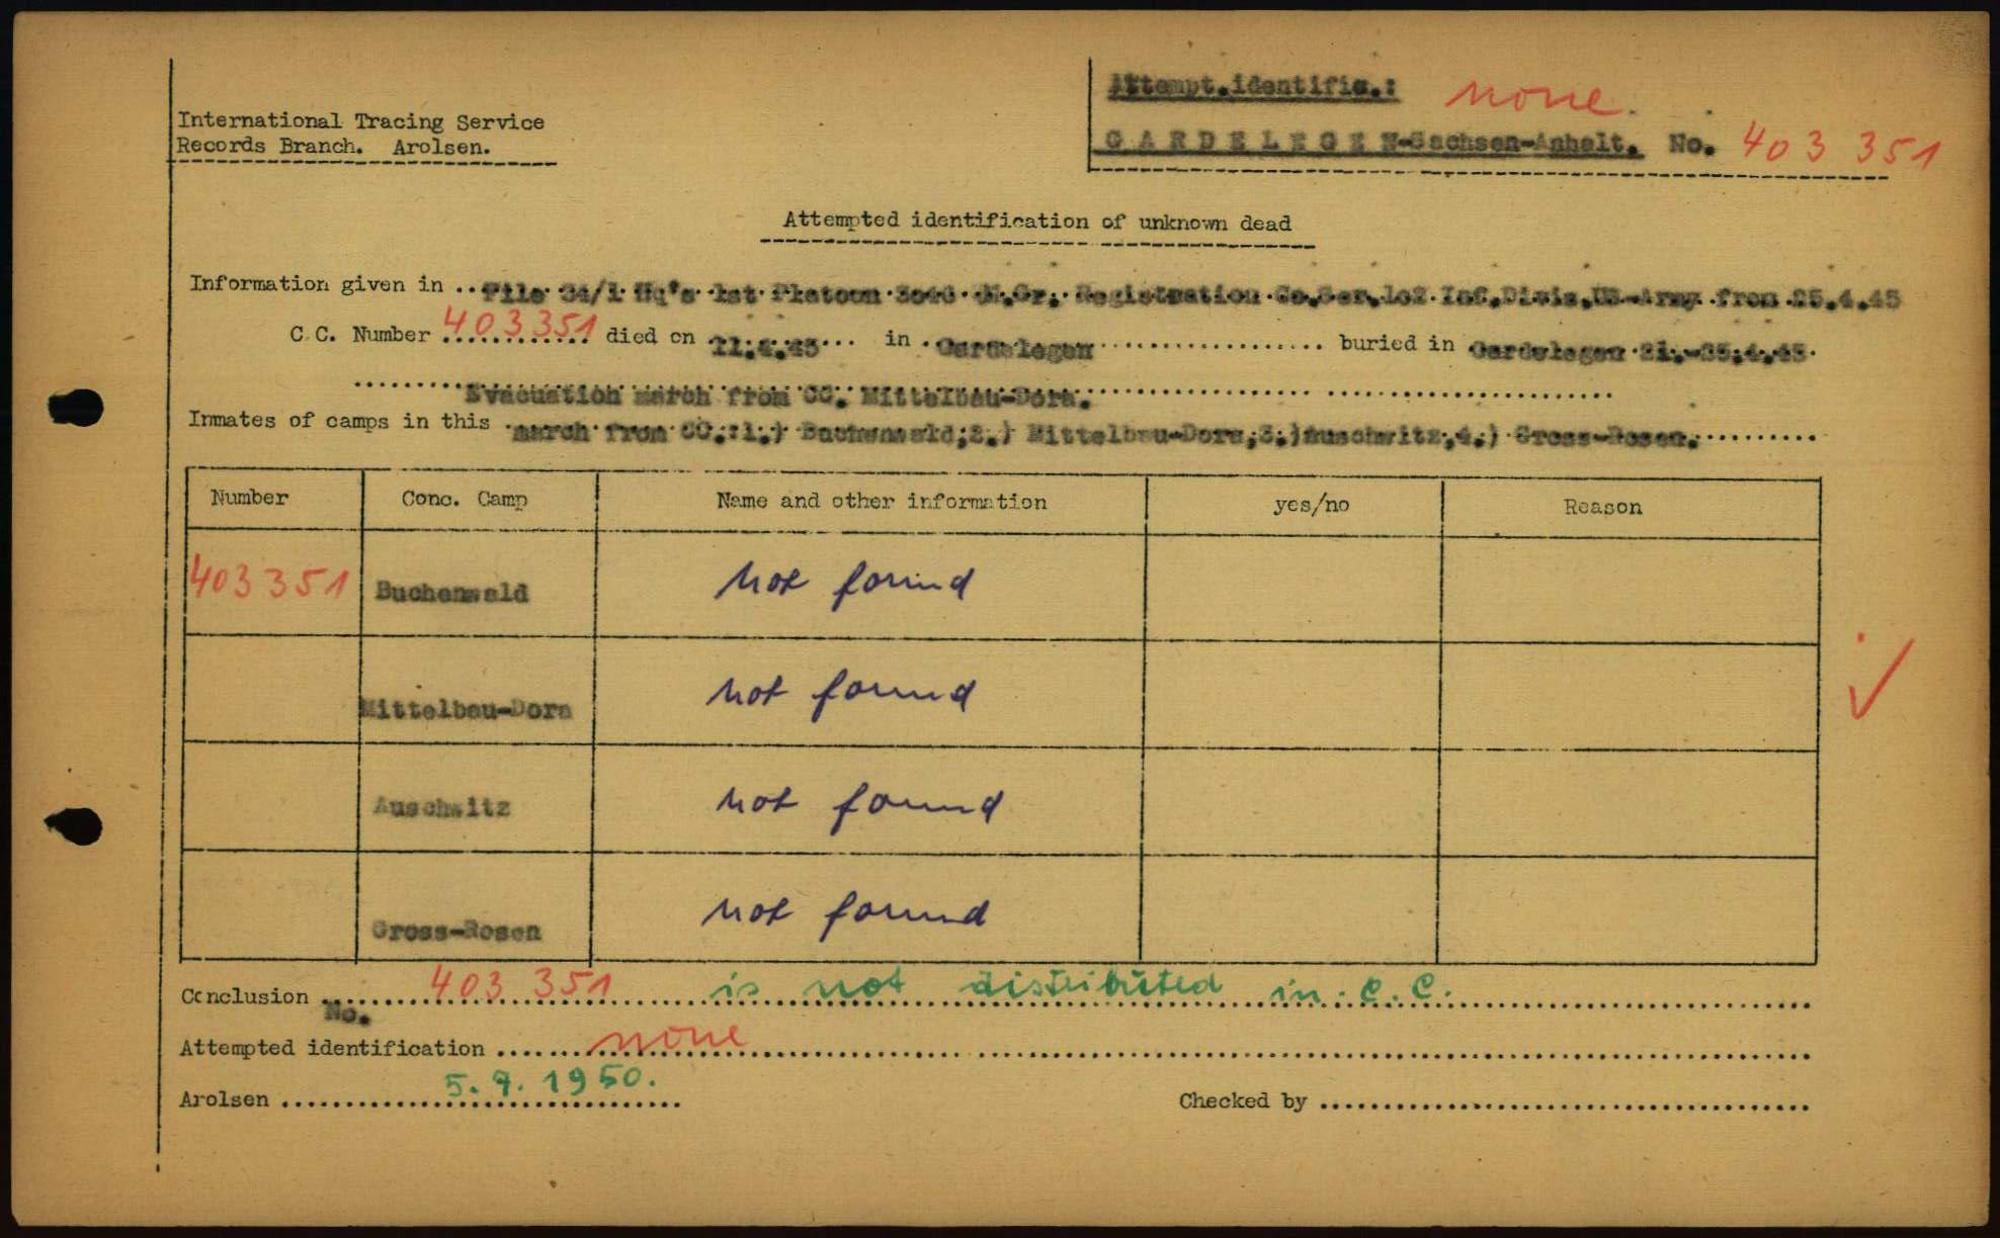 International Tracing Service
Records Branch. Arolsen.
Attempt.identific.: none.
GARDELEGEN-Sachsen-Anhalt. No. 403 351
Attempted identification of unknown dead
Information given in File 34/1 Hq's 1st Platoon Gr. Registration Co. 102 Inf. Divis. US-Army from 25.4.45
C.C. Number 403351 died on 11.4.45 in Gardelegen buried in Gardelegen 21.-25.4.45
Evacuation march from CC. Mittelbau-Dora.
Inmates of camps in this march from CC.:1.) Buchenwald;2.) Mittelbau-Dora;3.)Auschwitz;4.) Gross-Rosen.
Number Conc. Camp Name and other information yes/no Reason
403351 Buchenwald not found
Mittelbau-Dora not found
Auschwitz not found
Gross-Rosen not found
Conclusion No. 403 351 is not distributed in C.C.
Attempted identification none
Arolsen 5.7.1950. Checked by